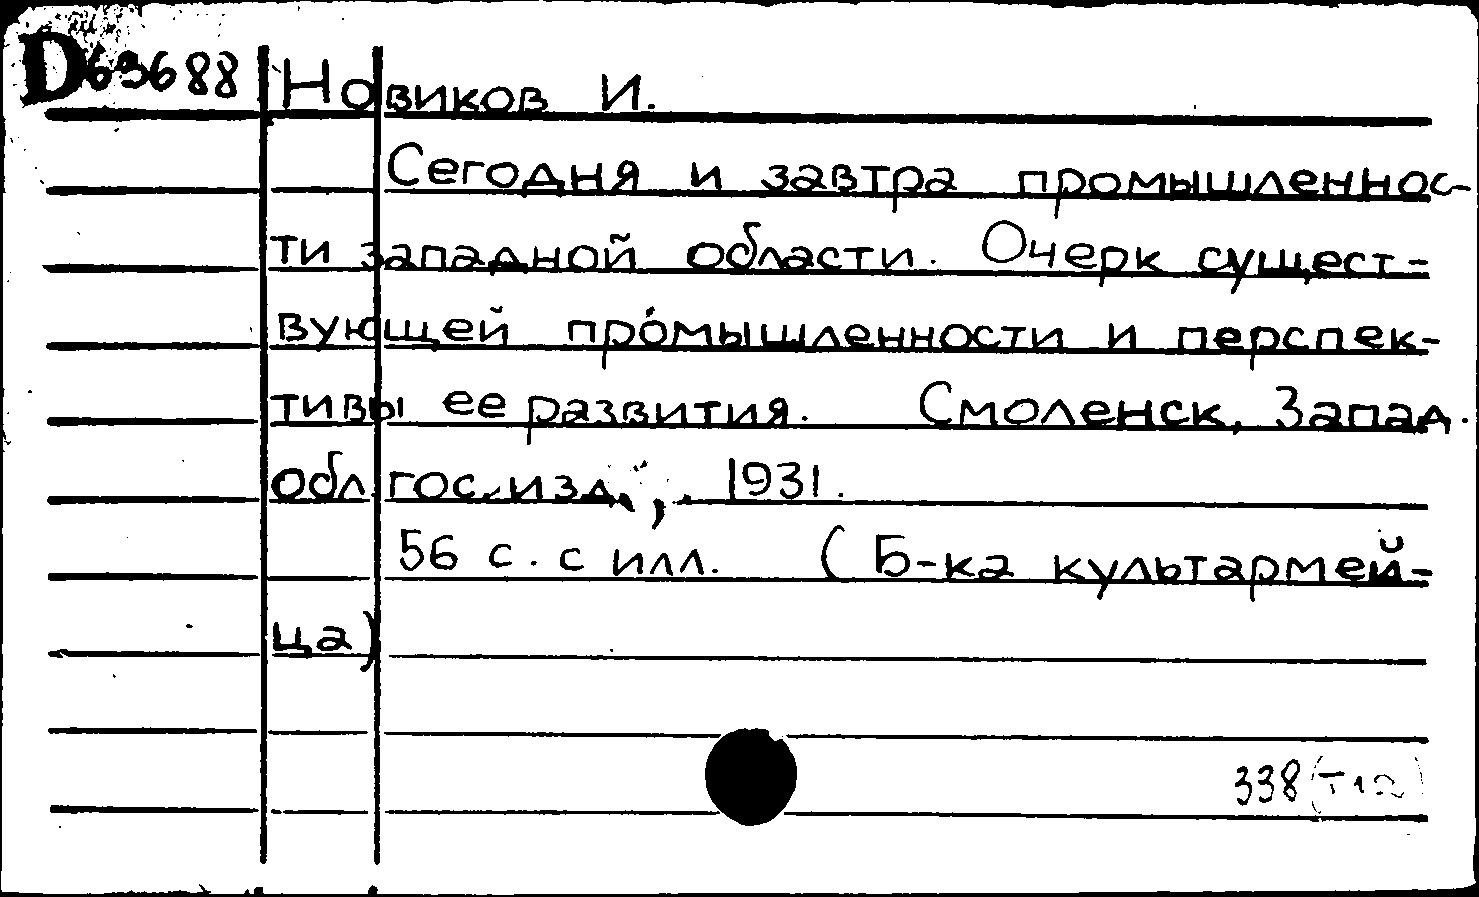 D63688 Новиков И.
Сегодня и завтра промышленнос-
ти западной области. Очерк сущест-
вующей промышленности и перспек-
тивы ее развития. Смоленск, Запад.
обл. гос. изд., 1931.
56 с. с илл. (Б-ка культармей-
ца)
338